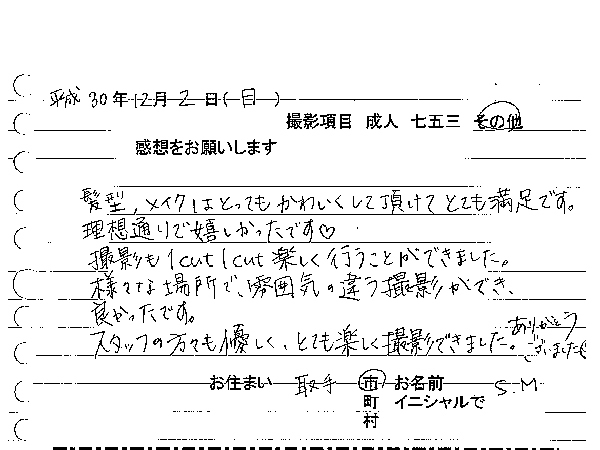 平成30年12月2日(日)
撮影項目 成人 七五三 その他
感想をお願いします
髪型、メイクはとってもかわいくして頂けてとても満足です。
理想通りで嬉しかったです♡
撮影も1cut1cut楽しく行うことができました。
様々な場所で、雰囲気の違う撮影ができ、
良かったです。
スタッフの方々も優しく、とても楽しく撮影できました。ありがとう
ございました
お住まい 取手 市 お名前 S.M
町 イニシャルで
村